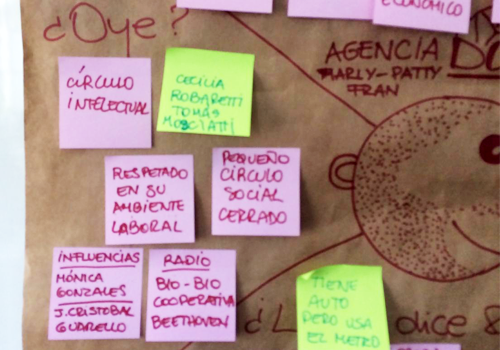 ¿Oye?
ECONÓMICO
AGENCIA
MARLY-PATTY
FRAN
CÍRCULO
INTELECTUAL
CECILIA
ROBARETTI
TOMÁS
MOSCIATTI
RESPETADO
EN SU
AMBIENTE
LABORAL
PEQUEÑO
CÍRCULO
SOCIAL
CERRADO
INFLUENCIAS
MÓNICA
GONZALES
J. CRISTOBAL
GUARELLO
RADIO
BIO-BIO
COOPERATIVA
BEETHOVEN
TIENE
AUTO
PERO USA
EL METRO
dice